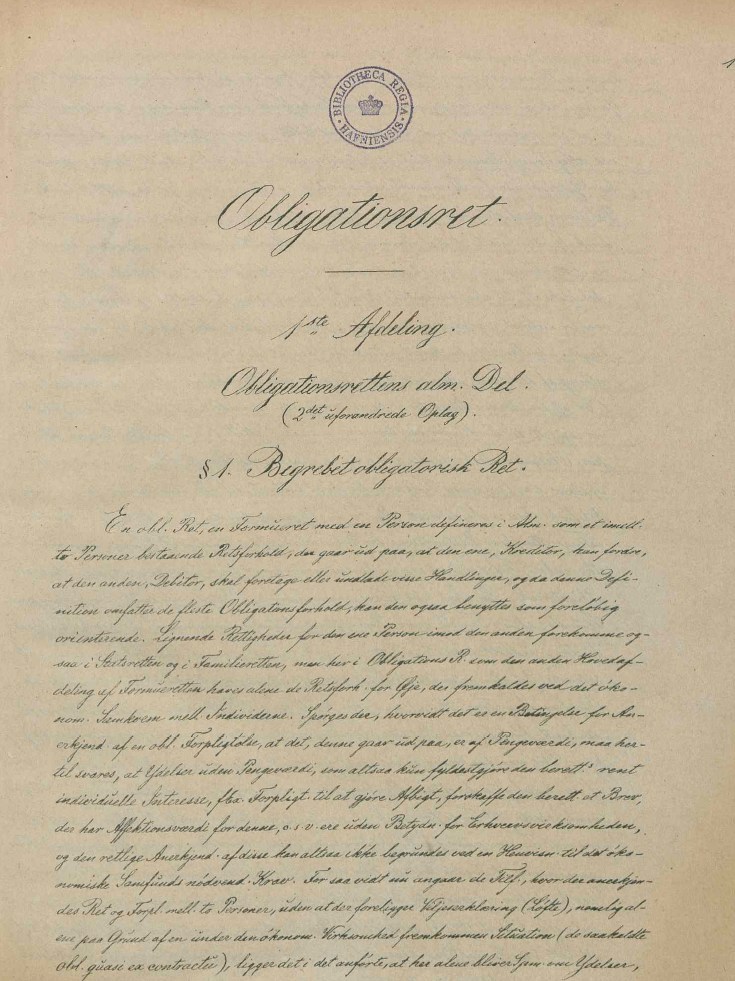 1
BIBLIOTHECA REGIA HAFNIENSIS
Obligationsret.
1ste Afdeling.
Obligationsrettens alm. Del.
(2det uforandrede Oplag).
§ 1. Begrebet obligatorisk Ret.
En obl. Ret, en Formueret med en Person defineres i Alm. som et imell.
to Personer bestaaende Retsforhold, der gaar ud paa, at den ene, Kreditor, kan fordre,
at den anden, Debitor, skal foretage eller undlade visse Handlinger, og da denne Defi-
nition omfatter de fleste Obligationsforhold, kan den ogsaa benyttes som foreløbig
orienterende. Lignende Rettigheder for den ene Person imod den anden forekomme og-
saa i Statsretten og i Familieretten, men her i Obligations R. som den anden Hovedaf-
deling af Formueretten haves alene de Retsforh. for Øje, der fremkaldes ved det öko-
nom. Samkvem mell. Individerne. Spørges der, hvorvidt det er en Betingelse for An-
erkjend. af en obl. Forpligtelse, at det, denne gaar ud paa, er af Pengeværdi, maa her-
til svares, at Ydelser uden Pengeværdi, som altsaa kun fyldestgjøre den berett.s rent
individuelle Interesse, fbx. Forpligt. til at gjøre Afbigt, forskaffe den berett. et Brev,
der har Affektionsværdi for denne, o.s.v. ere uden Betydn. for Erhvervsvirksomheden,
og den retlige Anerkjend. af disse kan altsaa ikke begrundes ved en Henvisn. til det öko-
nomiske Samfunds nödvend. Krav. For saa vidt nu angaar de Tilf., hvor der anerkjen-
des Ret og Forpl. mell. to Personer, uden at der foreligger Viljeserklæring (Löfte), nemlig al-
ene paa Grund af en under den ökonom. Virksomhed fremkommen Situation (de saakaldte
obl. quasi ex contractu), ligger det i det anförte, at her alene bliver Spm. om Ydelser,